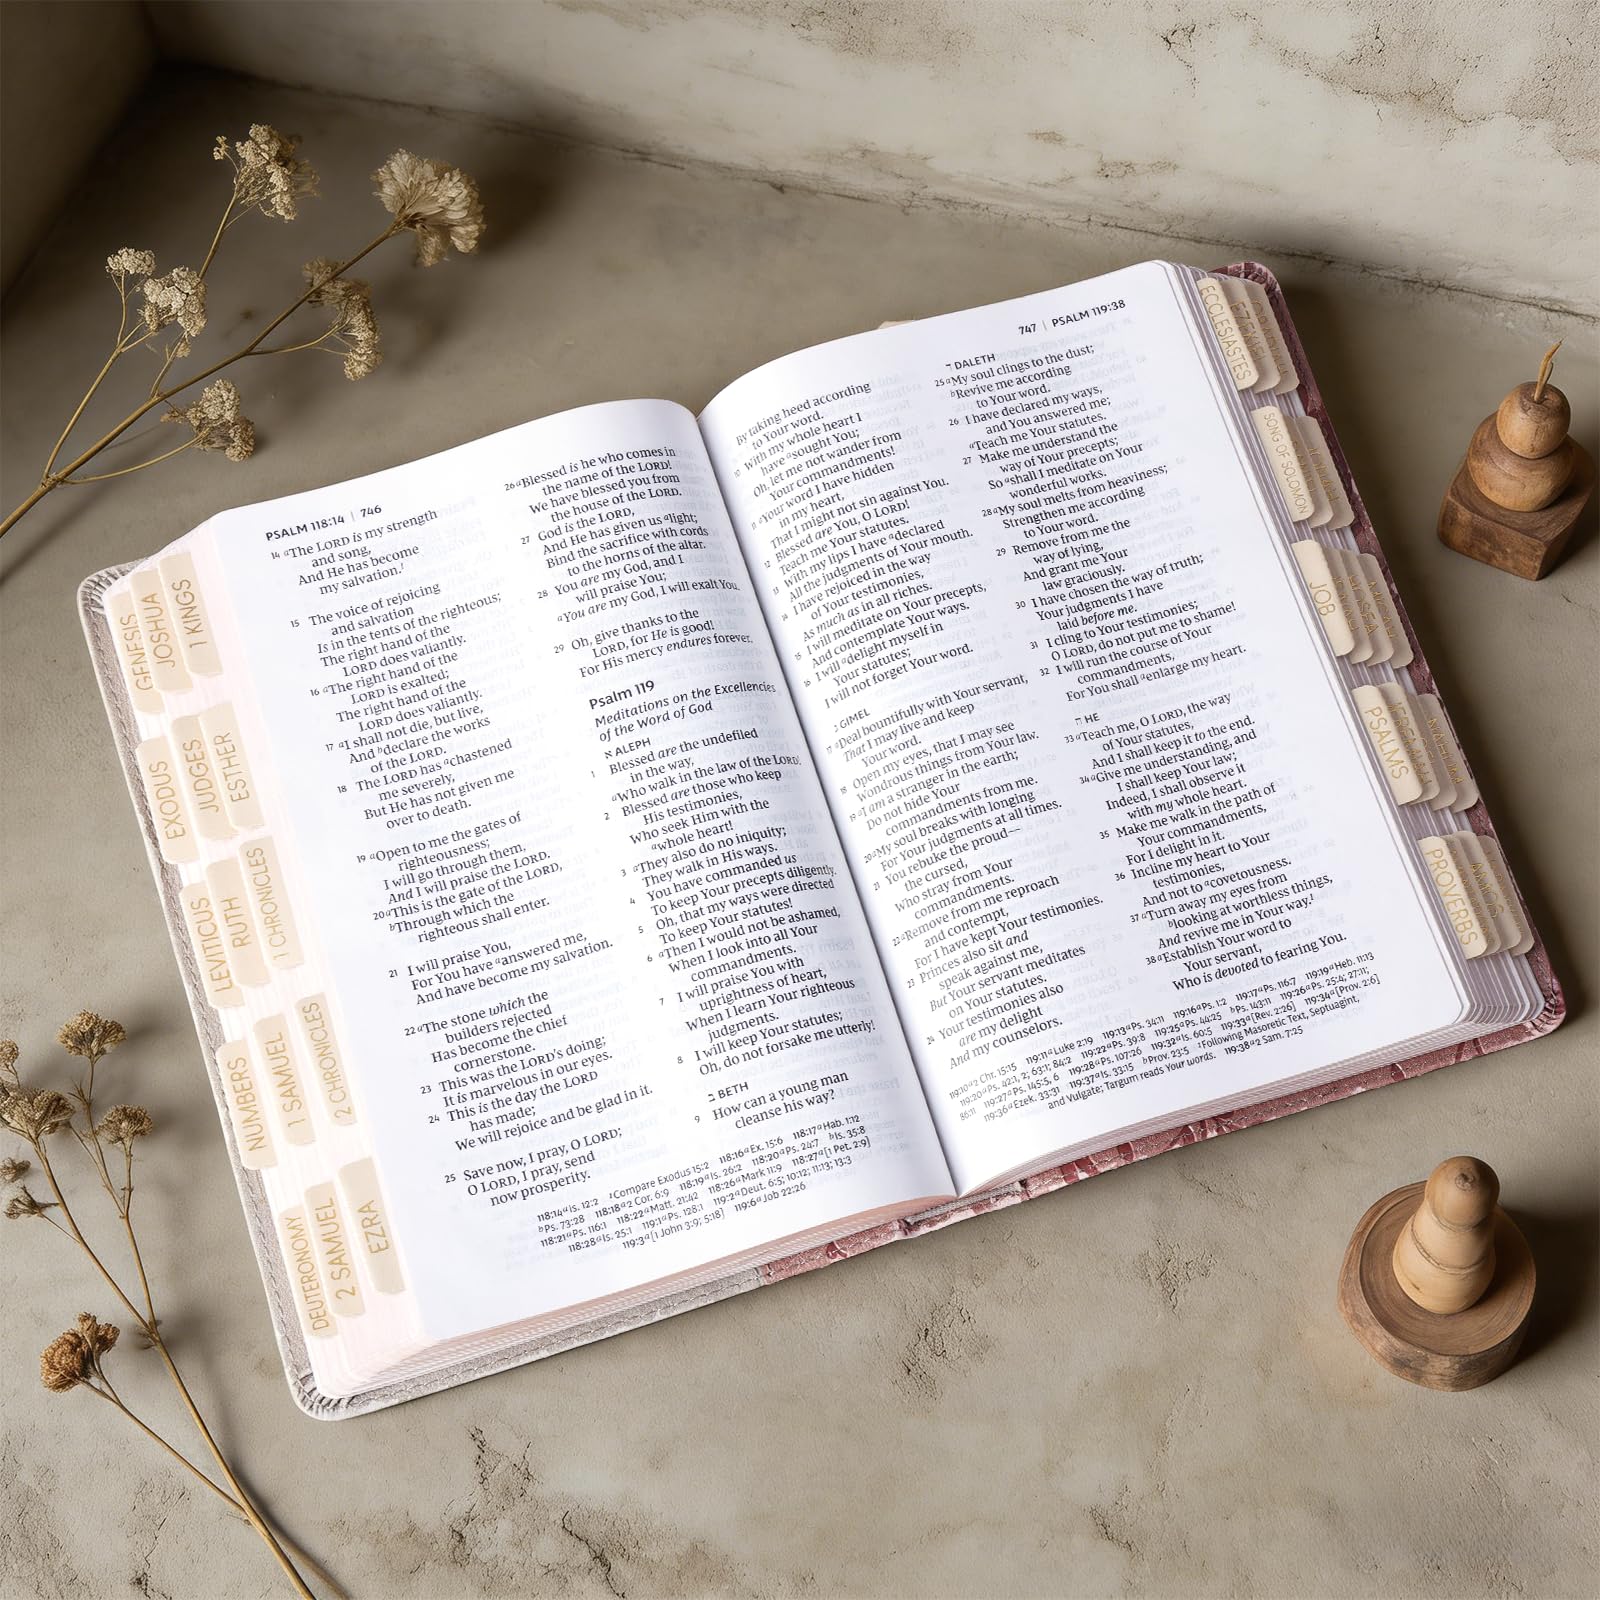 PSALM 118:14 | 746
14 aThe LORD is my strength
and song,
And He has become
my salvation.1
15 The voice of rejoicing
and salvation
Is in the tents of the righteous;
The right hand of the
LORD does valiantly.
16 aThe right hand of the
LORD is exalted;
The right hand of the
LORD does valiantly.
17 aI shall not die, but live,
And bdeclare the works
of the LORD.
18 The LORD has achastened
me severely,
But He has not given me
over to death.
19 aOpen to me the gates of
righteousness;
I will go through them,
And I will praise the LORD.
20 aThis is the gate of the LORD,
bThrough which the
righteous shall enter.
21 I will praise You,
For You have aanswered me,
And have become my salvation.
22 aThe stone which the
builders rejected
Has become the chief
cornerstone.
23 This was the LORD's doing;
It is marvelous in our eyes.
24 This is the day the LORD
has made;
We will rejoice and be glad in it.
25 Save now, I pray, O LORD;
O LORD, I pray, send
now prosperity.
26 aBlessed is he who comes in
the name of the LORD!
We have blessed you from
the house of the LORD.
27 God is the LORD,
And He has given us alight;
Bind the sacrifice with cords
to the horns of the altar.
28 You are my God, and I
will praise You;
aYou are my God, I will exalt You.
29 Oh, give thanks to the
LORD, for He is good!
For His mercy endures forever.
Psalm 119
Meditations on the Excellencies
of the Word of God
א ALEPH
1 Blessed are the undefiled
in the way,
aWho walk in the law of the LORD!
2 Blessed are those who keep
His testimonies,
Who seek Him with the
awhole heart!
3 aThey also do no iniquity;
They walk in His ways.
4 You have commanded us
To keep Your precepts diligently.
5 Oh, that my ways were directed
To keep Your statutes!
6 aThen I would not be ashamed,
When I look into all Your
commandments.
7 I will praise You with
uprightness of heart,
When I learn Your righteous
judgments.
8 I will keep Your statutes;
Oh, do not forsake me utterly!
ב BETH
9 How can a young man
cleanse his way?
118:14 a Is. 12:2 1Compare Exodus 15:2 118:16 a Ex. 15:6 118:17 a Hab. 1:12
b Ps. 73:28 118:18 a 2 Cor. 6:9 118:19 a Is. 26:2 118:20 a Ps. 24:7 b Is. 35:8
118:21 a Ps. 116:1 118:22 a Matt. 21:42 118:26 a Mark 11:9 118:27 a [1 Pet. 2:9]
118:28 a Is. 25:1 119:1 a Ps. 128:1 119:2 a Deut. 6:5; 10:12; 11:13; 13:3
119:3 a [1 John 3:9; 5:18] 119:6 a Job 22:26
747 | PSALM 119:38
By taking heed according
to Your word.
10 With my whole heart I
have asought You;
Oh, let me not wander from
Your commandments!
11 aYour word I have hidden
in my heart,
That I might not sin against You.
12 Blessed are You, O LORD!
Teach me Your statutes.
13 With my lips I have adeclared
All the judgments of Your mouth.
14 I have rejoiced in the way
of Your testimonies,
As much as in all riches.
15 I will meditate on Your precepts,
And contemplate Your ways.
16 I will adelight myself in
Your statutes;
I will not forget Your word.
ג GIMEL
17 aDeal bountifully with Your servant,
That I may live and keep
Your word.
18 Open my eyes, that I may see
Wondrous things from Your law.
19 aI am a stranger in the earth;
Do not hide Your
commandments from me.
20 aMy soul breaks with longing
For Your judgments at all times.
21 You rebuke the proud—
the cursed,
Who stray from Your
commandments.
22 aRemove from me reproach
and contempt,
For I have kept Your testimonies.
23 Princes also sit and
speak against me,
But Your servant meditates
on Your statutes.
24 Your testimonies also
are my delight
And my counselors.
ד DALETH
25 aMy soul clings to the dust;
bRevive me according
to Your word.
26 I have declared my ways,
and You answered me;
aTeach me Your statutes.
27 Make me understand the
way of Your precepts;
So ashall I meditate on Your
wonderful works.
28 aMy soul melts from heaviness;
Strengthen me according
to Your word.
29 Remove from me the
way of lying,
And grant me Your
law graciously.
30 I have chosen the way of truth;
Your judgments I have
laid before me.
31 I cling to Your testimonies;
O LORD, do not put me to shame!
32 I will run the course of Your
commandments,
For You shall aenlarge my heart.
ה HE
33 aTeach me, O LORD, the way
of Your statutes,
And I shall keep it to the end.
34 aGive me understanding, and
I shall keep Your law;
Indeed, I shall observe it
with my whole heart.
35 Make me walk in the path of
Your commandments,
For I delight in it.
36 Incline my heart to Your
testimonies,
And not to acovetousness.
37 aTurn away my eyes from
blooking at worthless things,
And revive me in Your way.1
38 aEstablish Your word to
Your servant,
Who is devoted to fearing You.
119:10 a 2 Chr. 15:15 119:11 a Luke 2:19 119:13 a Ps. 34:11 119:16 a Ps. 1:2 119:17 a Ps. 116:7 119:19 a Heb. 11:13
119:20 a Ps. 42:1, 2; 63:1; 84:2 119:22 a Ps. 39:8 119:25 a Ps. 44:25 b Ps. 143:11 119:26 a Ps. 25:4; 27:11;
86:11 119:27 a Ps. 145:5, 6 119:28 a Ps. 107:26 119:32 a Is. 60:5 119:33 a [Rev. 2:26] 119:34 a [Prov. 2:6]
119:36 a Ezek. 33:31 119:37 a Is. 33:15 b Prov. 23:5 1Following Masoretic Text, Septuagint,
and Vulgate; Targum reads Your words. 119:38 a 2 Sam. 7:25
GENESIS
JOSHUA
1 KINGS
EXODUS
JUDGES
ESTHER
LEVITICUS
RUTH
1 CHRONICLES
NUMBERS
1 SAMUEL
2 CHRONICLES
DEUTERONOMY
2 SAMUEL
EZRA
ECCLESIASTES
EZEKIEL
SONG OF SOLOMON
JOB
HOSEA
MICAH
PSALMS
PROVERBS
AMOS